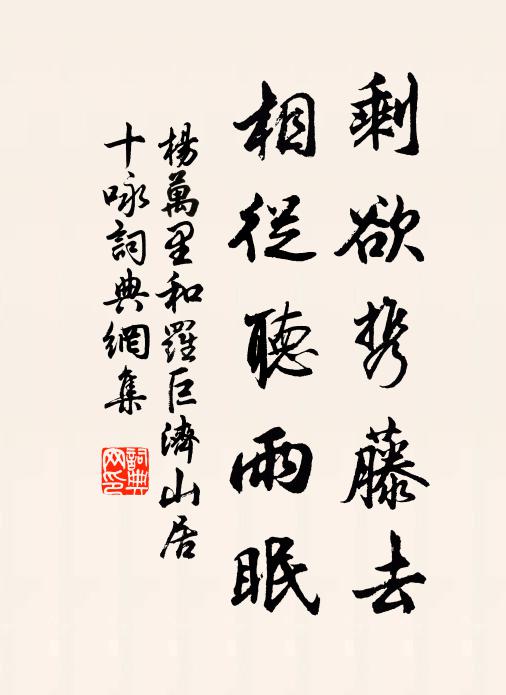 剩欲携藤去
相從聽雨眠
楊萬里和羅巨濟山居
十咏詞典網集
詞典網印